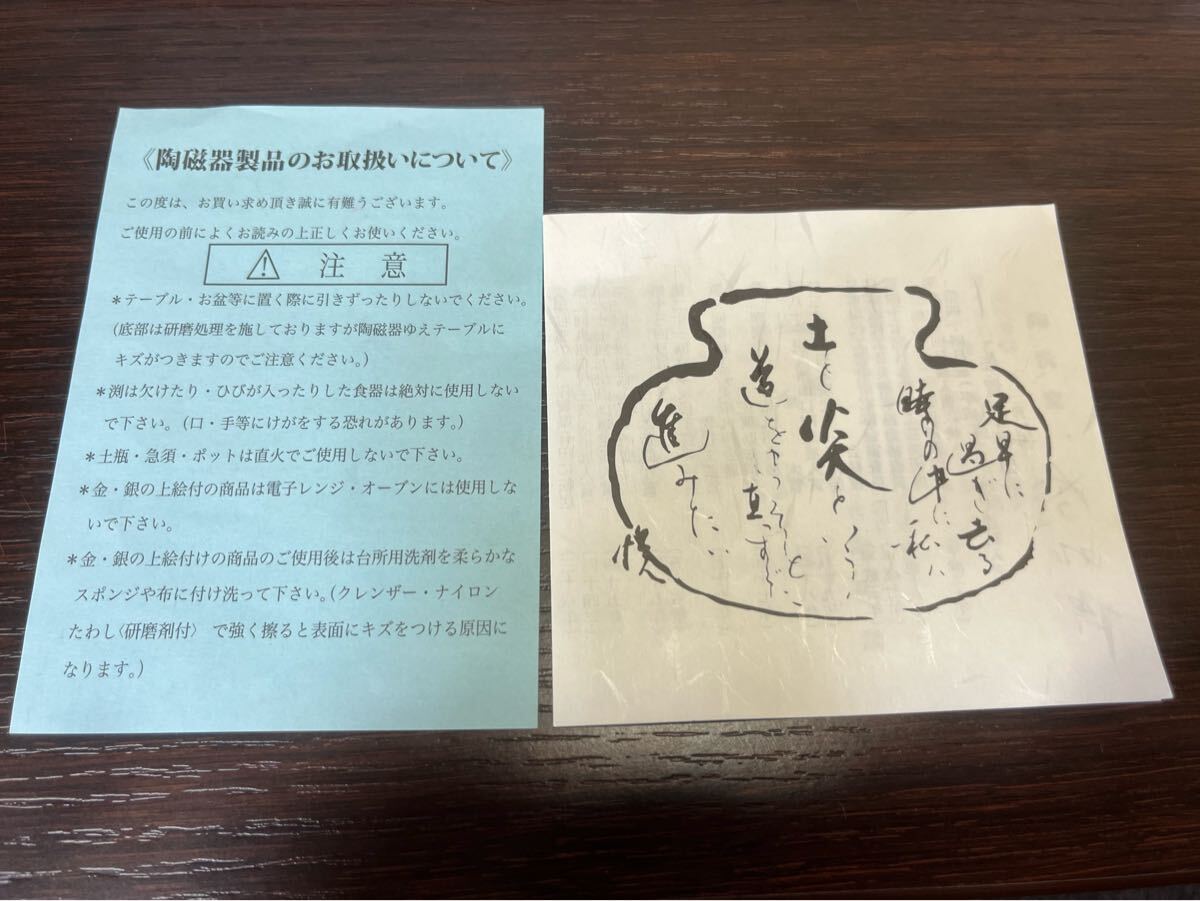 《陶磁器製品のお取扱いについて》
この度は、お買い求め頂き誠に有難うございます。
ご使用の前によくお読みの上正しくお使いください。
注意
*テーブル・お盆等に置く際に引きずったりしないでください。
(底部は研磨処理を施しておりますが陶磁器ゆえテーブルに
キズがつきますのでご注意ください。)
*渕は欠けたり・ひびが入ったりした食器は絶対に使用しない
で下さい。(口・手等にけがをする恐れがあります。)
*土瓶・急須・ポットは直火でご使用しないで下さい。
*金・銀の上絵付の商品は電子レンジ・オーブンには使用しな
いで下さい。
*金・銀の上絵付けの商品のご使用後は台所用洗剤を柔らかな
スポンジや布に付け洗って下さい。(クレンザー・ナイロン
たわし〈研磨剤付〉で強く擦ると表面にキズをつける原因に
なります。)
足早に
過ぎ去る
時の中に私は
土と炎と
道をゆっくりと
真っすぐに
進みたい